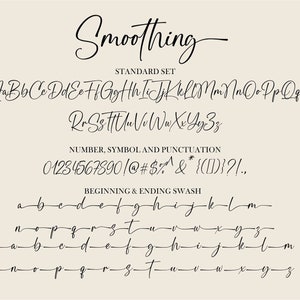 Smoothing
STANDARD SET
AaBbCcDdEeFfGgHhIiJjKkLlMmNnOoPpQq
RrSsTtUuVvWwXxYyZz
NUMBER, SYMBOL AND PUNCTUATION
01234567890!@#$%^&*{([])}?!.,
BEGINNING & ENDING SWASH
a b c d e f g h i j k l m
n o p q r s t u v w x y z
a b c d e f g h i j k l m
n o p q r s t u v w x y z